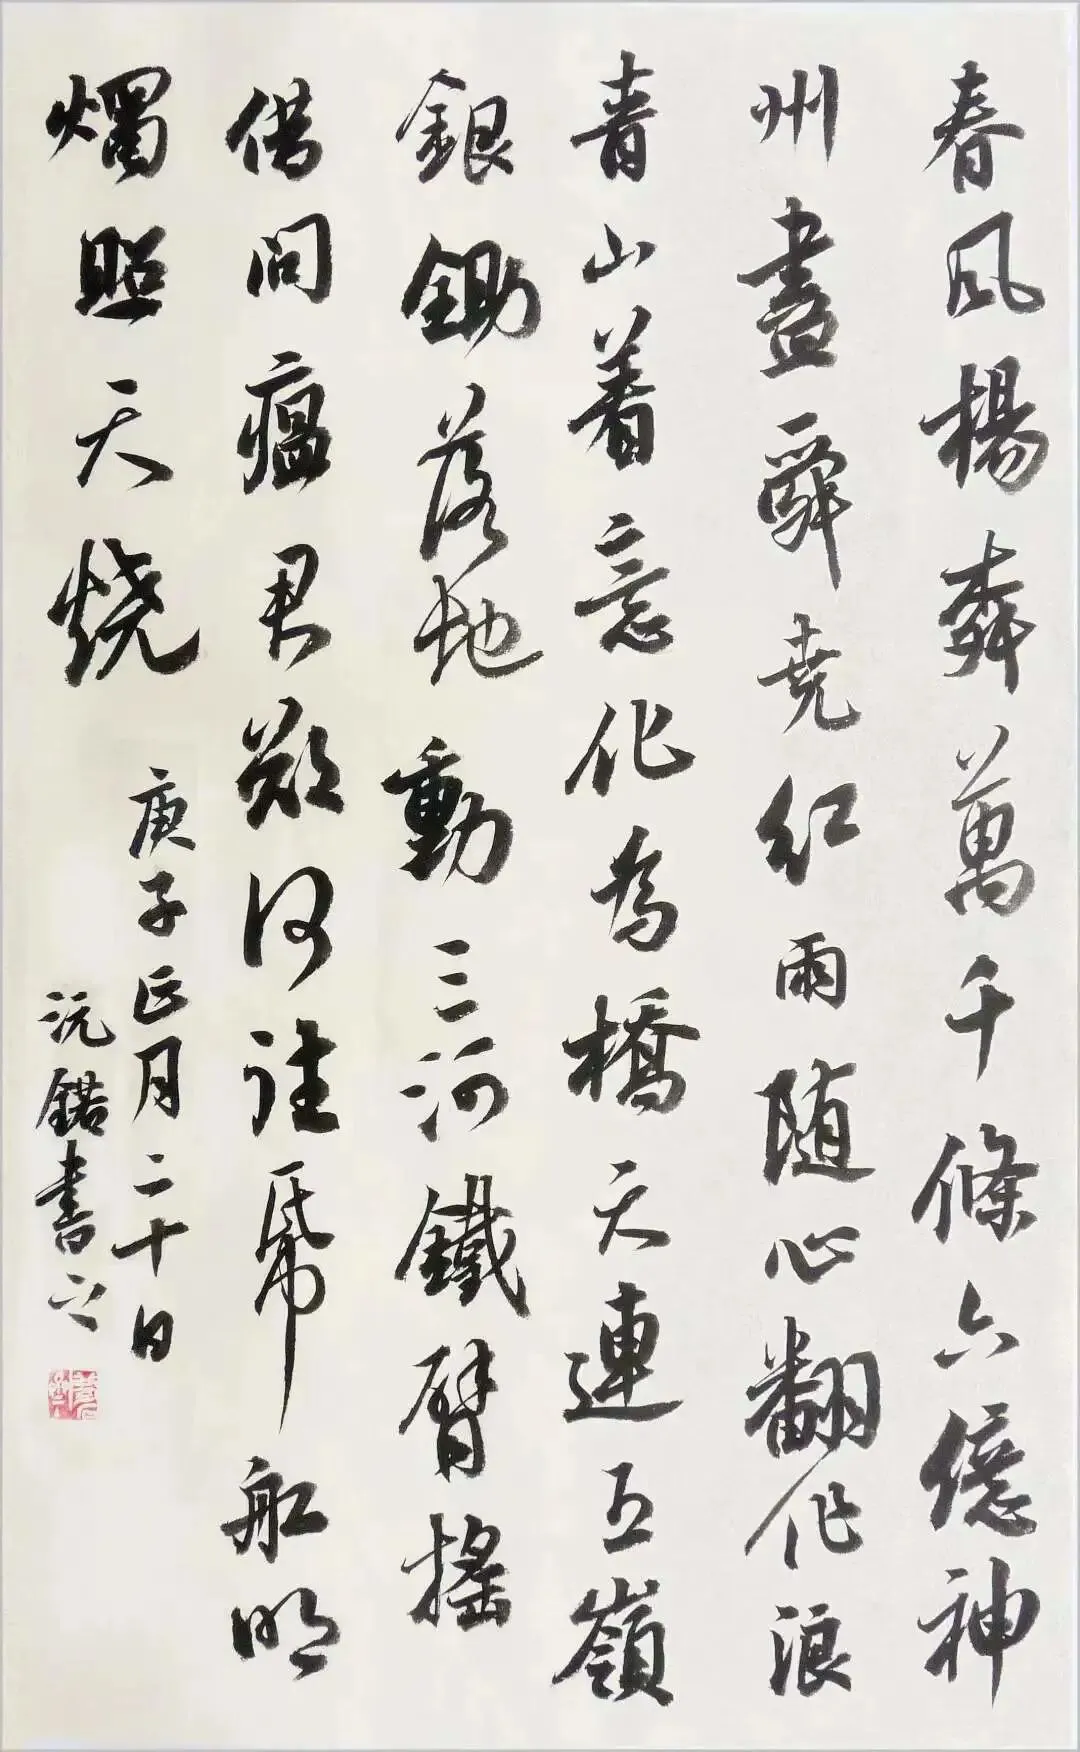 春風楊柳萬千條六億神
州盡舜堯紅雨隨心翻作浪
青山着意化為橋天連五嶺
銀鋤落地動三河鐵臂搖
借問瘟君欲何往帋船明
燭照天燒
庚子正月二十日
沅鍩書之